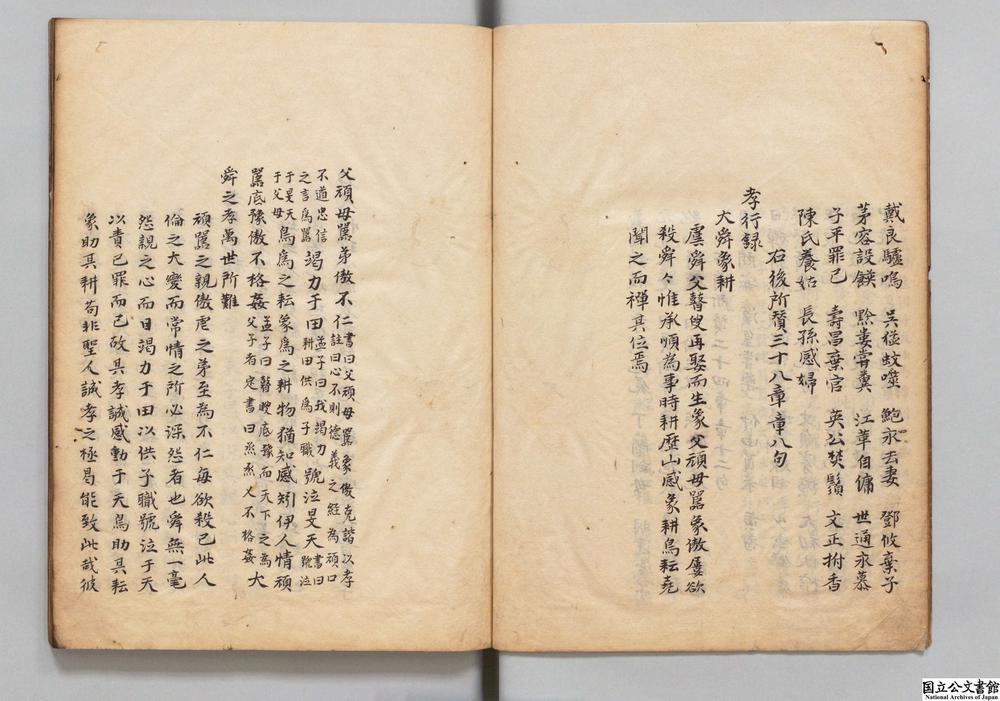 戴良驢鳴　吳猛蚊噬　鮑永去妻　鄧攸棄子
茅容設饌　黔婁嘗糞　江革自傭　世通永慕
子平罪己　壽昌棄官　英公焚鬚　文正拊香
陳氏養姑　長孫感婦
右後所贊三十八章章八句
孝行録
大舜象耕
虞舜父瞽叟再娶而生象父頑母嚚象傲屢欲
殺舜々惟承順為事時耕歷山感象耕鳥耘堯
聞之而禪其位焉
父頑母嚚弟傲不仁書曰父頑母嚚象傲克諧以孝
註曰心不則德義之經為頑口
不道忠信
之言為嚚竭力于田孟子曰我竭力
耕田供為子職號泣旻天書曰
號泣
于旻天
于父母鳥為之耘象為之耕物猶知感矧伊人情頑
嚚底豫傲不格姦孟子曰瞽瞍底豫而天下之為
父子者定書曰烝烝乂不格姦大
舜之孝萬世所難
頑嚚之親傲虐之弟至為不仁每欲殺己此人
倫之大變而常情之所必深怨者也舜無一毫
怨親之心而日竭力于田以供子職號泣于天
以責己罪而已故其孝誠感動于天鳥助其耘
象助其耕苟非聖人誠孝之極曷能致此哉彼
国立公文書館
National Archives of Japan